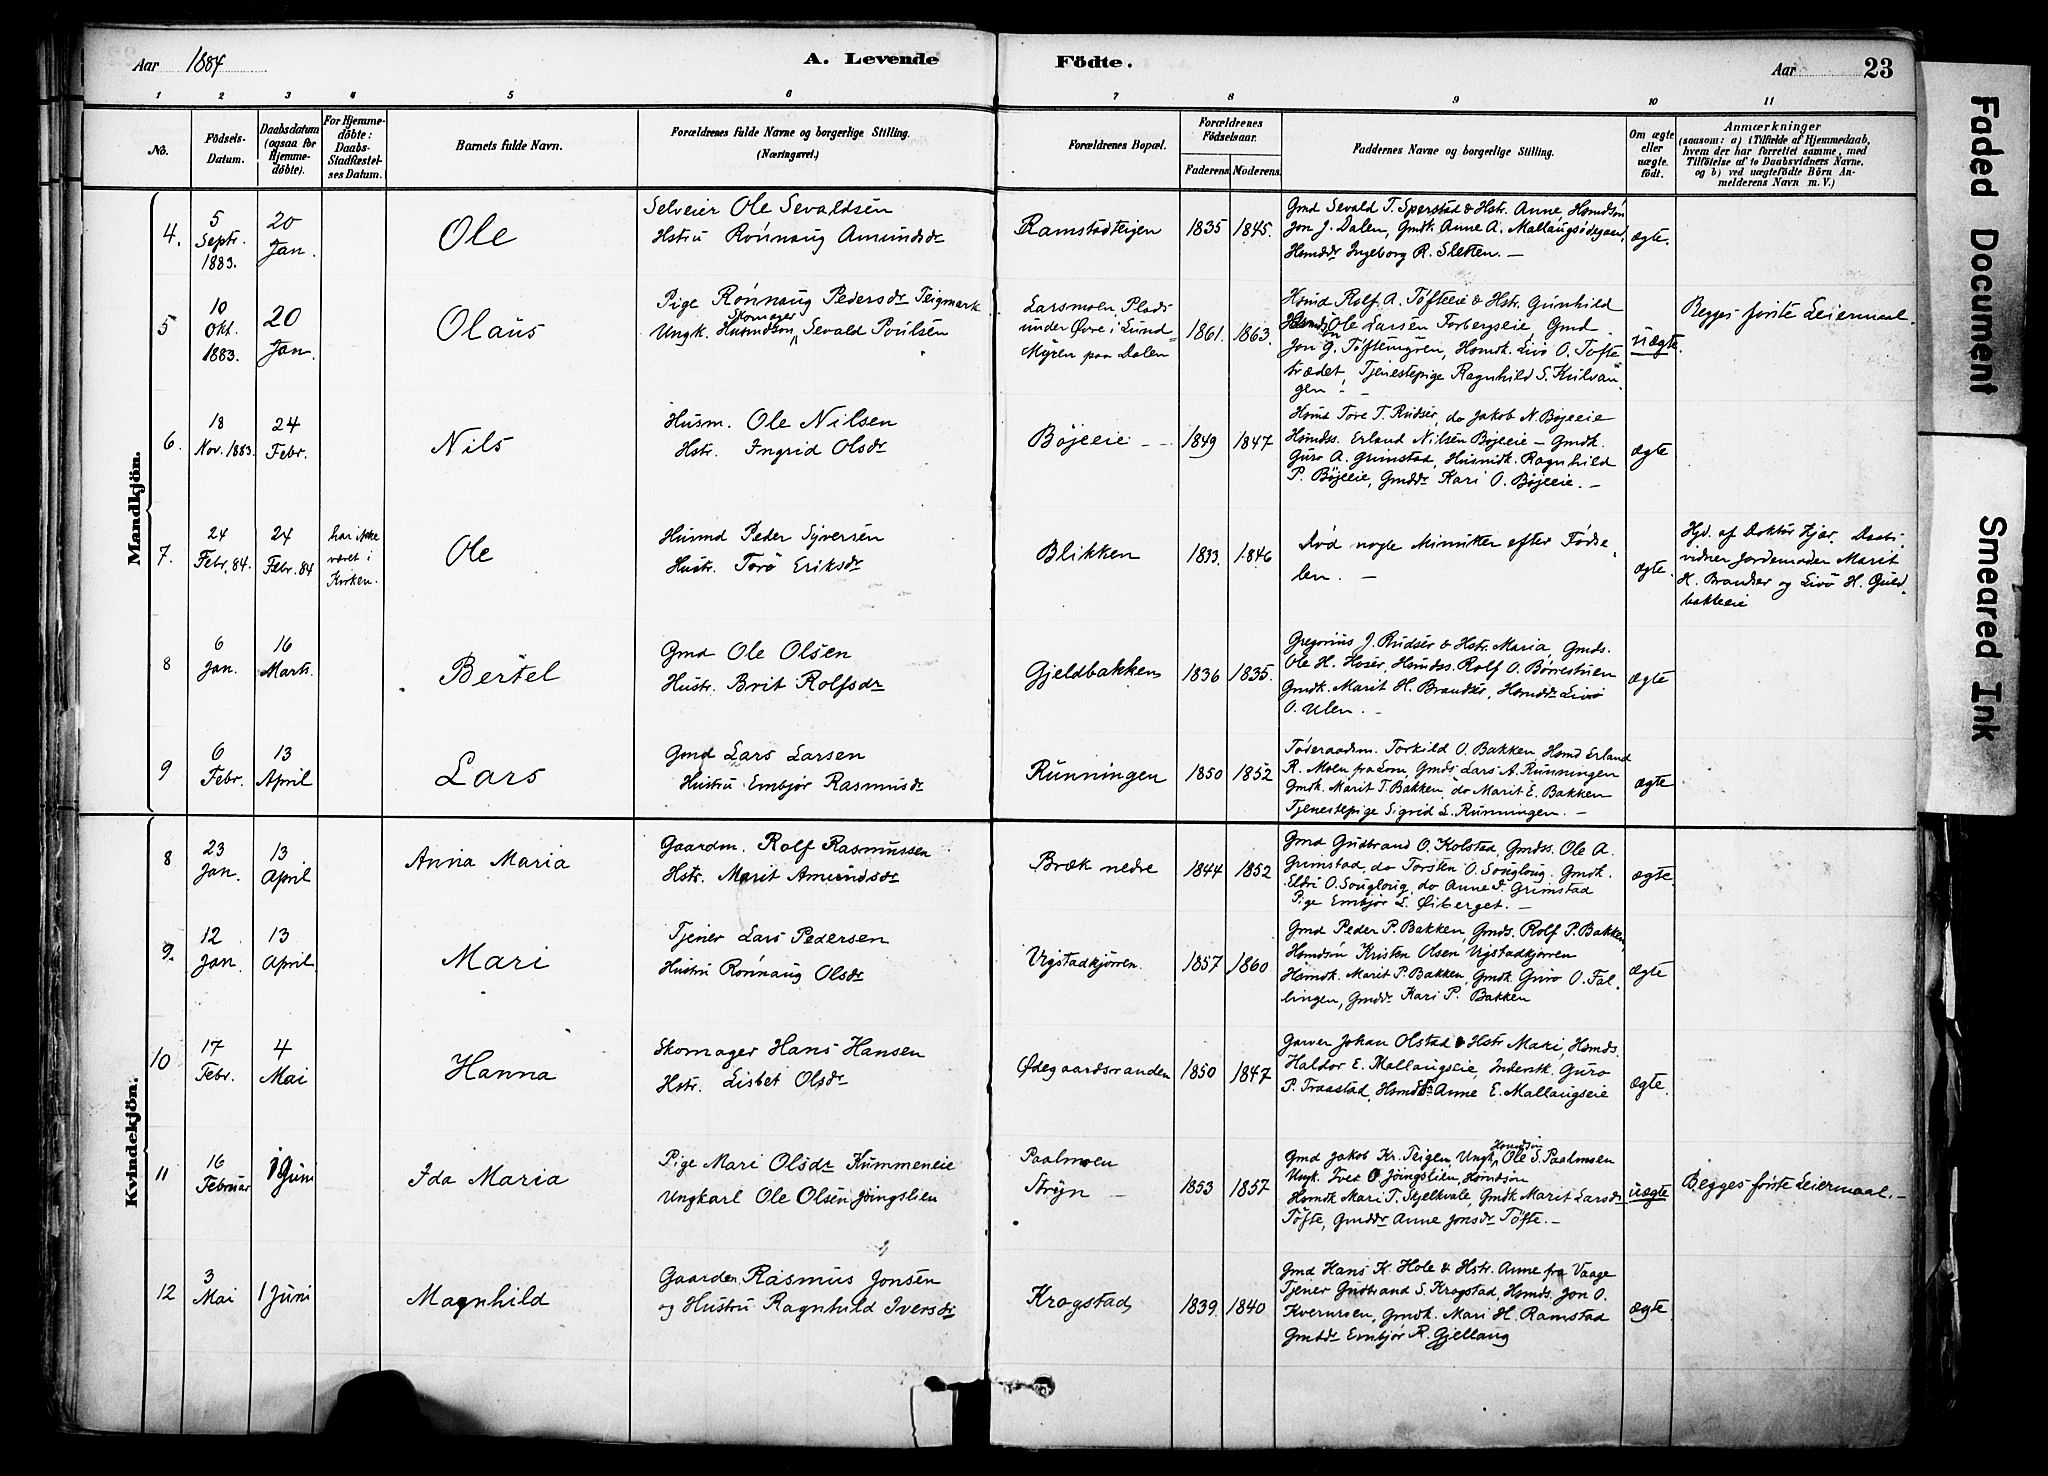 Aar 1884
A. Levende Födte.
Aar 23
1 2 3 4 5 6 7 8 9 10 11
No.
Födsels-Datum.
Daabsdatum (ogsaa for Hjemmedöbte).
For Hjemmedöbte: Daabs-Stadfæstelses Datum.
Barnets fulde Navn.
Forældrenes fulde Navne og borgerlige Stilling. (Næringsvei.)
Forældrenes Bopæl.
Forældrenes Födselsaar.
Faderens Moderens.
Faddernes Navne og borgerlige Stilling.
Om ægte eller uægte födt.
Anmærkninger
(saasom: a) i Tilfælde af Hjemmedaab, hvem der har forrettet samme, med Tilföielse af to Daabsvidners Navne, og b) ved uægtefödte Börn Anmelderens Navn m. V.)
Mandkjön.
4. 5 Septr. 1883. 20 Jan. Ole
Selveier Ole Sevaldsen
Hstru Rönnaug Amundsdr
Ramstadteigen 1835 1845.
Gmd Sevald T. Sperstad & Hstr. Anne, Hsmdsön
Jon J. Dalen, Gmdk. Anne A. Mallaugsödegaard,
Hsmddr Ingeborg R. Sletten. —
ægte.
5 10 Okt. 1883. 20 Jan. Olaus
Pige Rönnaug Pedersdr Teigmark
Skomager
Ungk. Husmdson, Sevald Poulsen
Larsmoen, Plads
under Øvre i Lund
Myren paa Dalen
1861. 1863.
Hsmd Rolf A. Tøfteeie & Hstr. Gunhild
Ole Larsen Forbergseie, Gmd
Jon G. Tøftemyren, Hsmdk. Livo O. Tøfte
trædet, Tjenestepige Ragnhild S. Kulvan-
gen —
uægte.
Begges første Leiermaal.
6. 18 Nov. 1883. 24 Febr. Nils
Husm. Ole Nilsen
Hstr. Ingrid Olsdr
Bøjeeie — 1849 1847
Hsmd Tore T. Rudser, do Jakob N. Bøjeeie
Hsmdss. Erland Nilsen Bøjeeie — Gmdk.
Guro A. Grimstad, Husmdk. Ragnhild
P. Bøjeeie, Gmddr Kari O. Bøjeeie. —
ægte
7. 24 Febr. 84. 24 Febr. 84
har ikke
været i
Kirken.
Ole
Husmd Peder Syversen
Hustr. Torø Eriksdr
Blikken 1833. 1846
Død nogle Minutter efter Fødse-
len. —
ægte.
Hjd. af Doktor Kjær. Daabs-
vidner Jordemoder Marit
H. Brandser og Livø H. Guld-
bakkeeie
8 6 Jan. 16 Marts. Bertel
Gmd Ole Olsen
Hustr. Brit Rolfsdr
Gjeldbakken 1836 1835.
Gregorius J. Rudser & Hstr. Maria, Gmds.
Ole H. Hoser, Hsmdss. Rolf O. Børrestuen
Gmdk. Marit H. Brandser, Hsmddr Livø
O. Ulen. —
ægte
9 6 Febr. 13 April Lars
Gmd Lars Larsen
Hustru Embjør Rasmusdr
Runningen 1850 1852
Føderaadsm. Torkild O. Bakken Hsmd Erland
R. Moen fra Lom, Gmds Lars A. Runningen
Gmdk. Marit T. Bakken, do Marit E. Bakken
Tjenestepige Sigrid L. Runningen. —
ægte
Kvindekjön.
8 23 Jan. 13 April Anna Maria
Gaardm. Rolf Rasmussen
Hstr. Marit Amundsdr
Bræk nedre 1844 1852
Gmd Gudbrand O. Kolstad Gmdss. Ole A.
Grimstad, do Torsten O. Sougloug. Gmdk.
Eldri O. Sougloug, do Anne I. Grimstad
Pige Embjør L. Øiberget. —
ægte.
9. 12 Jan. 13 April. Mari
Tjener Lars Pedersen
Hustru Rönnaug Olsdr
Vigstadkjørren. 1857 1860
Gmd Peder P. Bakken, Gmds. Rolf P. Bakken,
Hsmdsön Kristen Olsen Vigstadkjørren
Hsmdk. Marit P. Bakken, Gmdk Guro O. Fal-
lingen, Gmddr Kari P. Bakken
ægte
10 17 Febr. 4 Mai Hanna
Skomager Hans Hansen
Hstr. Lisbet Olsdr
Ødegaardsranden 1850 1847
Garver Johan Olstad & Hstr Mari, Hsmds.
Haldor E. Mallaugseie, Inderstk. Guro
P. Fraastad, Hsmddr Anne E. Mallaugseie
ægte.
11 16 Februar 1 Juni Ida Maria
Pige Mari Olsdr Kummeneie
Ungkarl Ole Olsen Jöingslien
Paalmoen
Stryn —
1853 1857
Hsmdsön
Gmd Jakob Kr. Teigen, Ungk. Ole S. Paalmoen
Ungk. Iver O Jöingslien, Hsmdsön
Hsmdk Mari T. Skjelkvale, Gmdk Marit Larsdr
Töfte, Gmddr Anne Jonsdr Töfte. —
uægte
Begges første Leiermaal. —
12 3 Mai 1 Juni Magnhild
Gaardm. Rasmus Jonsen
og Hustru Ragnhild Iversdr
Krogstad 1839. 1840
Gmd Hans K. Hole & Hstr. Anne fra Vaage
Tjener Gudbrand S. Krogstad, Hsmds. Jon O.
Kvernroen, Gmdk. Mari H. Ramstad
Gmddr Embjør R. Gjellaug
ægte.
Faded Document
Smeared Ink